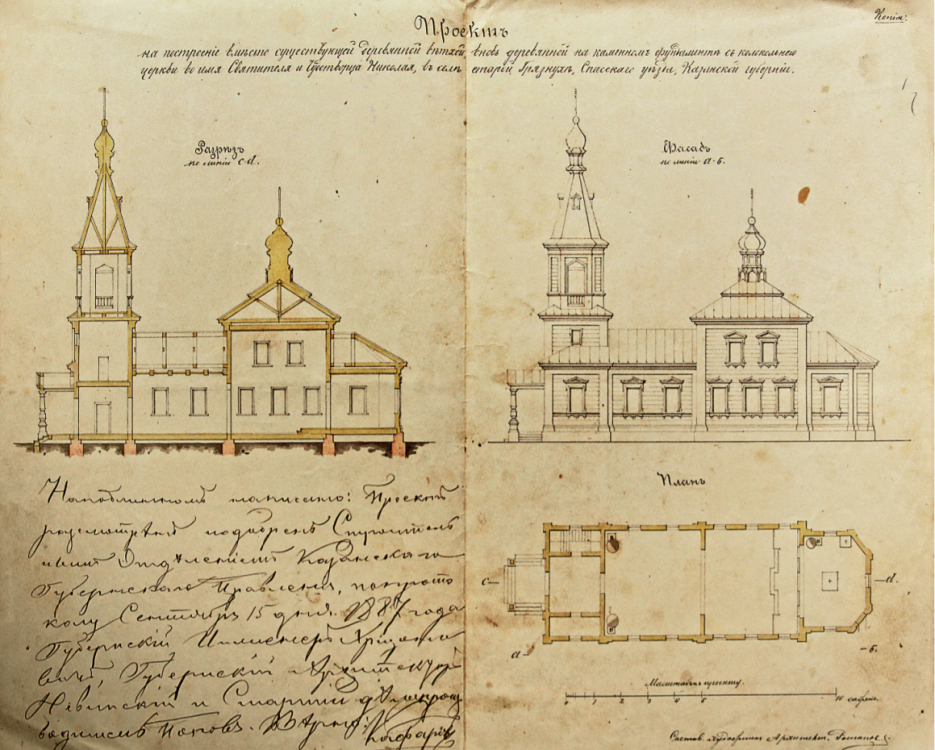 Копія.
Проектъ
на построеніе вмѣсто существующей деревянной вѣтхой, вновь деревянной на каменномъ фундаментѣ съ колокольнею
церкви во имя Святителя и Чудотворца Николая, въ селѣ старой Грязнухѣ, Спасскаго уѣзда, Казанской губерніи.
Разрѣзъ
по линіи c-d.
Фасадъ
по линіи a-б.
Планъ
c
d.
a
б.
Масштабъ
0 1 2 3 4 5 10 сажень
На подлинномъ написано: Проектъ
разсмотрѣнъ и одобренъ Строитель
нымъ Отдѣленіемъ Казанскаго
Губернскаго Правленія, по прото
колу Сентября 15 дня 1887 года
Губернскій Инженеръ
Губернскій Архитекторъ
и Старшій дѣлопроиз
водитель Поповъ. Вѣрно:
Состав. Художникъ Архитект.